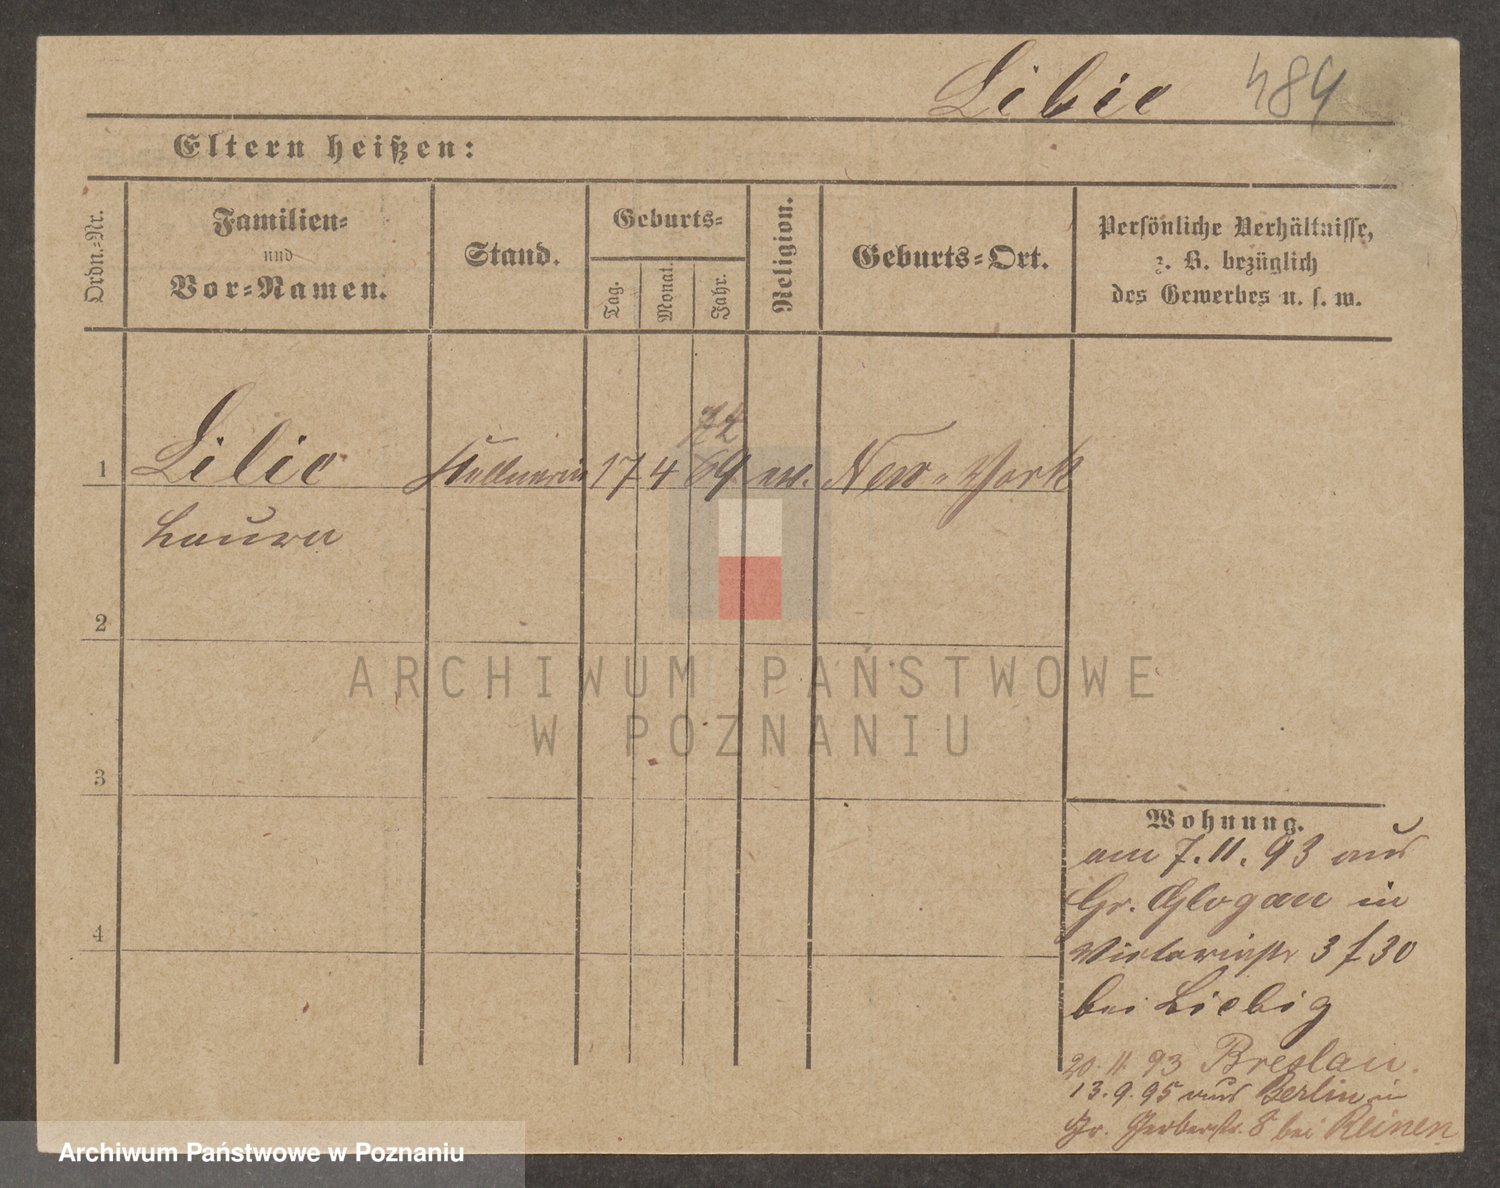 Lilie 484
Eltern heißen:
Ordn.-Nr.
Familien-
und
Vor-Namen.
Stand.
Geburts-
Tag.
Monat.
Jahr.
Religion.
Geburts-Ort.
Persönliche Verhältnisse,
z. B. bezüglich
des Gewerbes u. s. w.
72
1 Lilie Kellnerin 17 4 69 ev. New-York
Laura
2
3
4
ARCHIWUM PAŃSTWOWE
W POZNANIU
Wohnung.
am 7.11.93 aus
Gr. Glogau in
Victoriastr 3 f 30
bei Liebig
20.11.93 Breslau.
13.9.95 aus Berlin in
Gr. Gerberstr. 8 bei Reinen
Archiwum Państwowe w Poznaniu